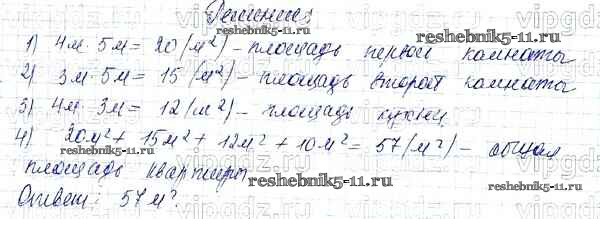 Решение:
1) 4м · 5м = 20 (м²) – площадь первой комнаты
2) 3м · 5м = 15 (м²) – площадь второй комнаты
3) 4м · 3м = 12 (м²) – площадь кухни
4) 20м² + 15м² + 12м² + 10м² = 57 (м²) – общая
площадь квартиры
Ответ: 57 м².
reshebnik5-11.ru
reshebnik5-11.ru
reshebnik5-11.ru
vipgdz.ru